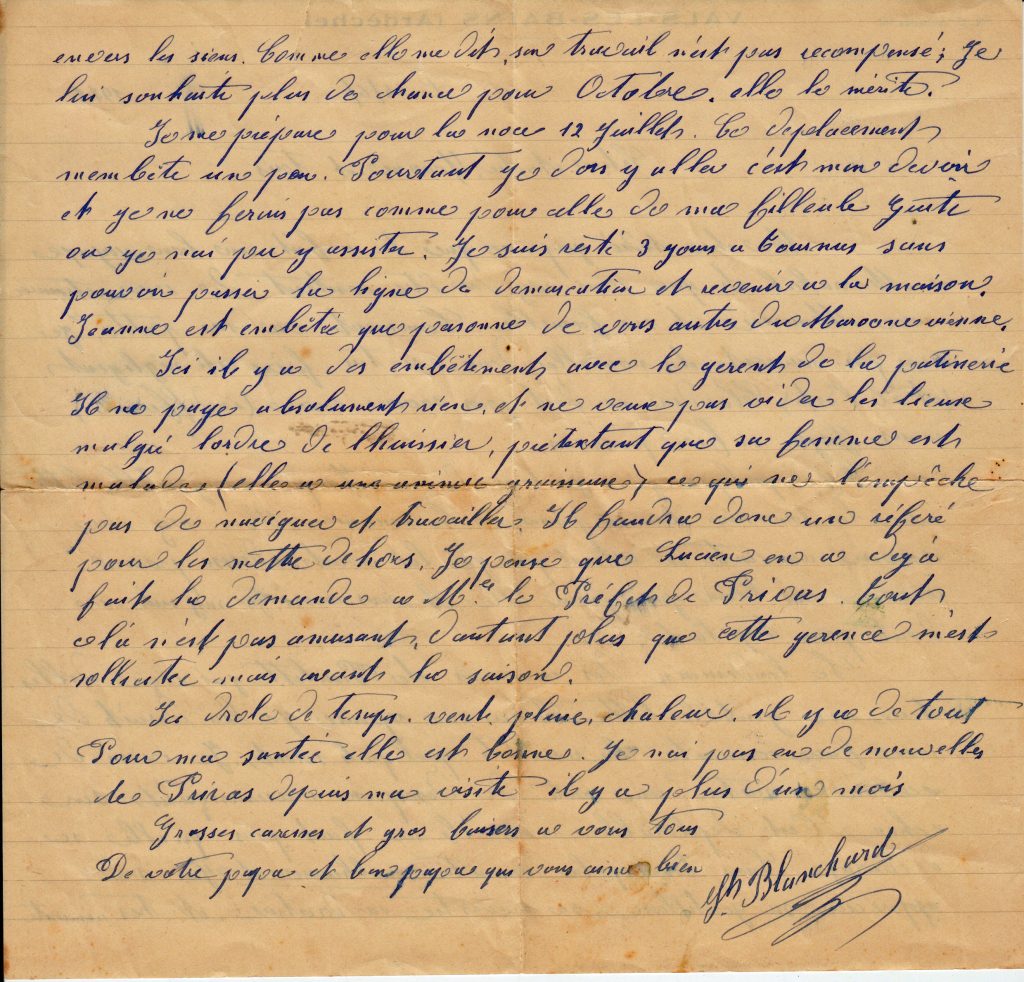 envers les siens. Comme elle me dit, son travail n'est pas recompensé; Je
lui souhaite plus de chance pour Octobre. elle le mérite.
Je me prépare pour la noce 12 Juillet. Ce deplacement
membête un peu. Pourtant je dois y aller c'est mon devoir
et je ne ferais pas comme pour celle de ma filleule Guite
ou je nai pu y assister. Je suis resté 3 jours a Tournus sans
pouvoir passer la ligne de demarcation et revenir a la maison.
Jeanne est embêtée que personne de vous autres du Maroc ne vienne.
Ici il y a des embêtements avec le gerent de la patisserie
Il ne paye absolument rien. et ne veux pas vider les lieux
malgré lordre de lhuissier, prétextant que sa femme est
malade (elle a une graisseuse) ce qui ne l'empêche
pas de naviguer et travailler. Il faudra donc un référé
pour les mettre dehors. Je pense que Lucien en a dejà
fait la demande a Mr le Préfet de Privas. Tout
celà n'est pas amusant, dautant plus que cette gerence m'est
sollicitée mais avant la saison.
Ici drole de temps. vent, pluie, chaleur. il y a de tout
Pour ma santée elle est bonne. Je nai pas eu de nouvelles
de Privas depuis ma visite il y a plus d'un mois
Grosses caresses et gros baisers a vous tous
De votre papa et bon papa qui vous aime bien
Blanchard